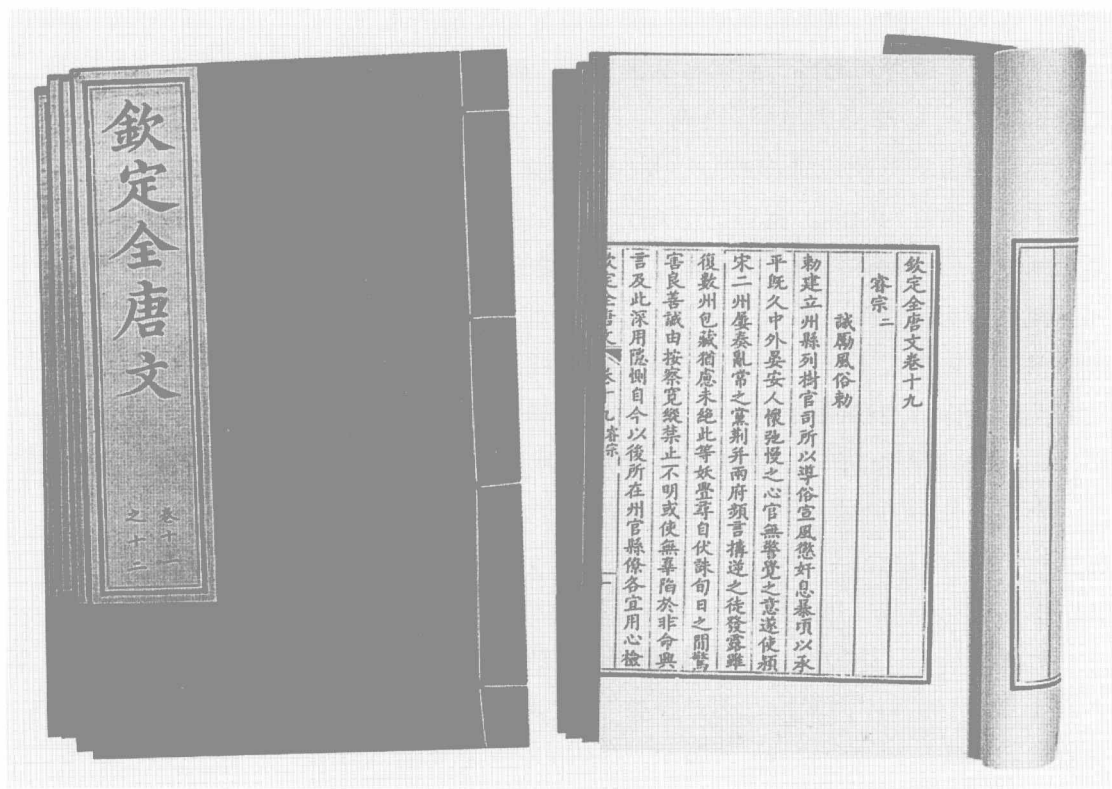 欽定全唐文
卷十一
之十二
欽定全唐文卷十九
睿宗二
誡勵風俗勅
勅建立州縣列樹官司所以導俗宣風懲奸息暴頃以承
平既久中外晏安人懷弛慢之心官無警覺之意遂使潁
宋二州屢奏亂常之黨荆并兩府頻言搆逆之徒發露雖
復數州包藏猶慮未絶此等妖舋尋自伏誅旬日之間驚
害良善誠由按察寛縱禁止不明或使無辜陷於非命興
言及此深用隱惻自今以後所在州官縣僚各宜用心檢
欽定全唐文 卷十九 睿宗 一